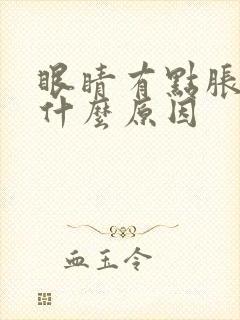 眼睛有點脹
什麼原因
血玉令